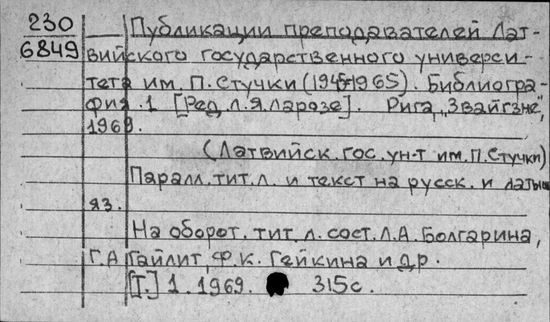 230
6849
Публикации преподавателей Лат-
вийского государственного универси-
тета им. П. Стучки (1945-1965). Библиогра-
фия. 1 [Ред. Л.Я. Ларозе]. Рига, "Звайгзне",
1969.
(Латвийск. гос. ун-т им. П. Стучки)
Паралл. тит. л. и текст на русск. и латыш
яз.
На оборот. тит. л. сост. Л.А. Болгарина,
Г.А Гайлит, Ф.К. Гейкина и др.
[Т.] 1. 1969. 315 с.